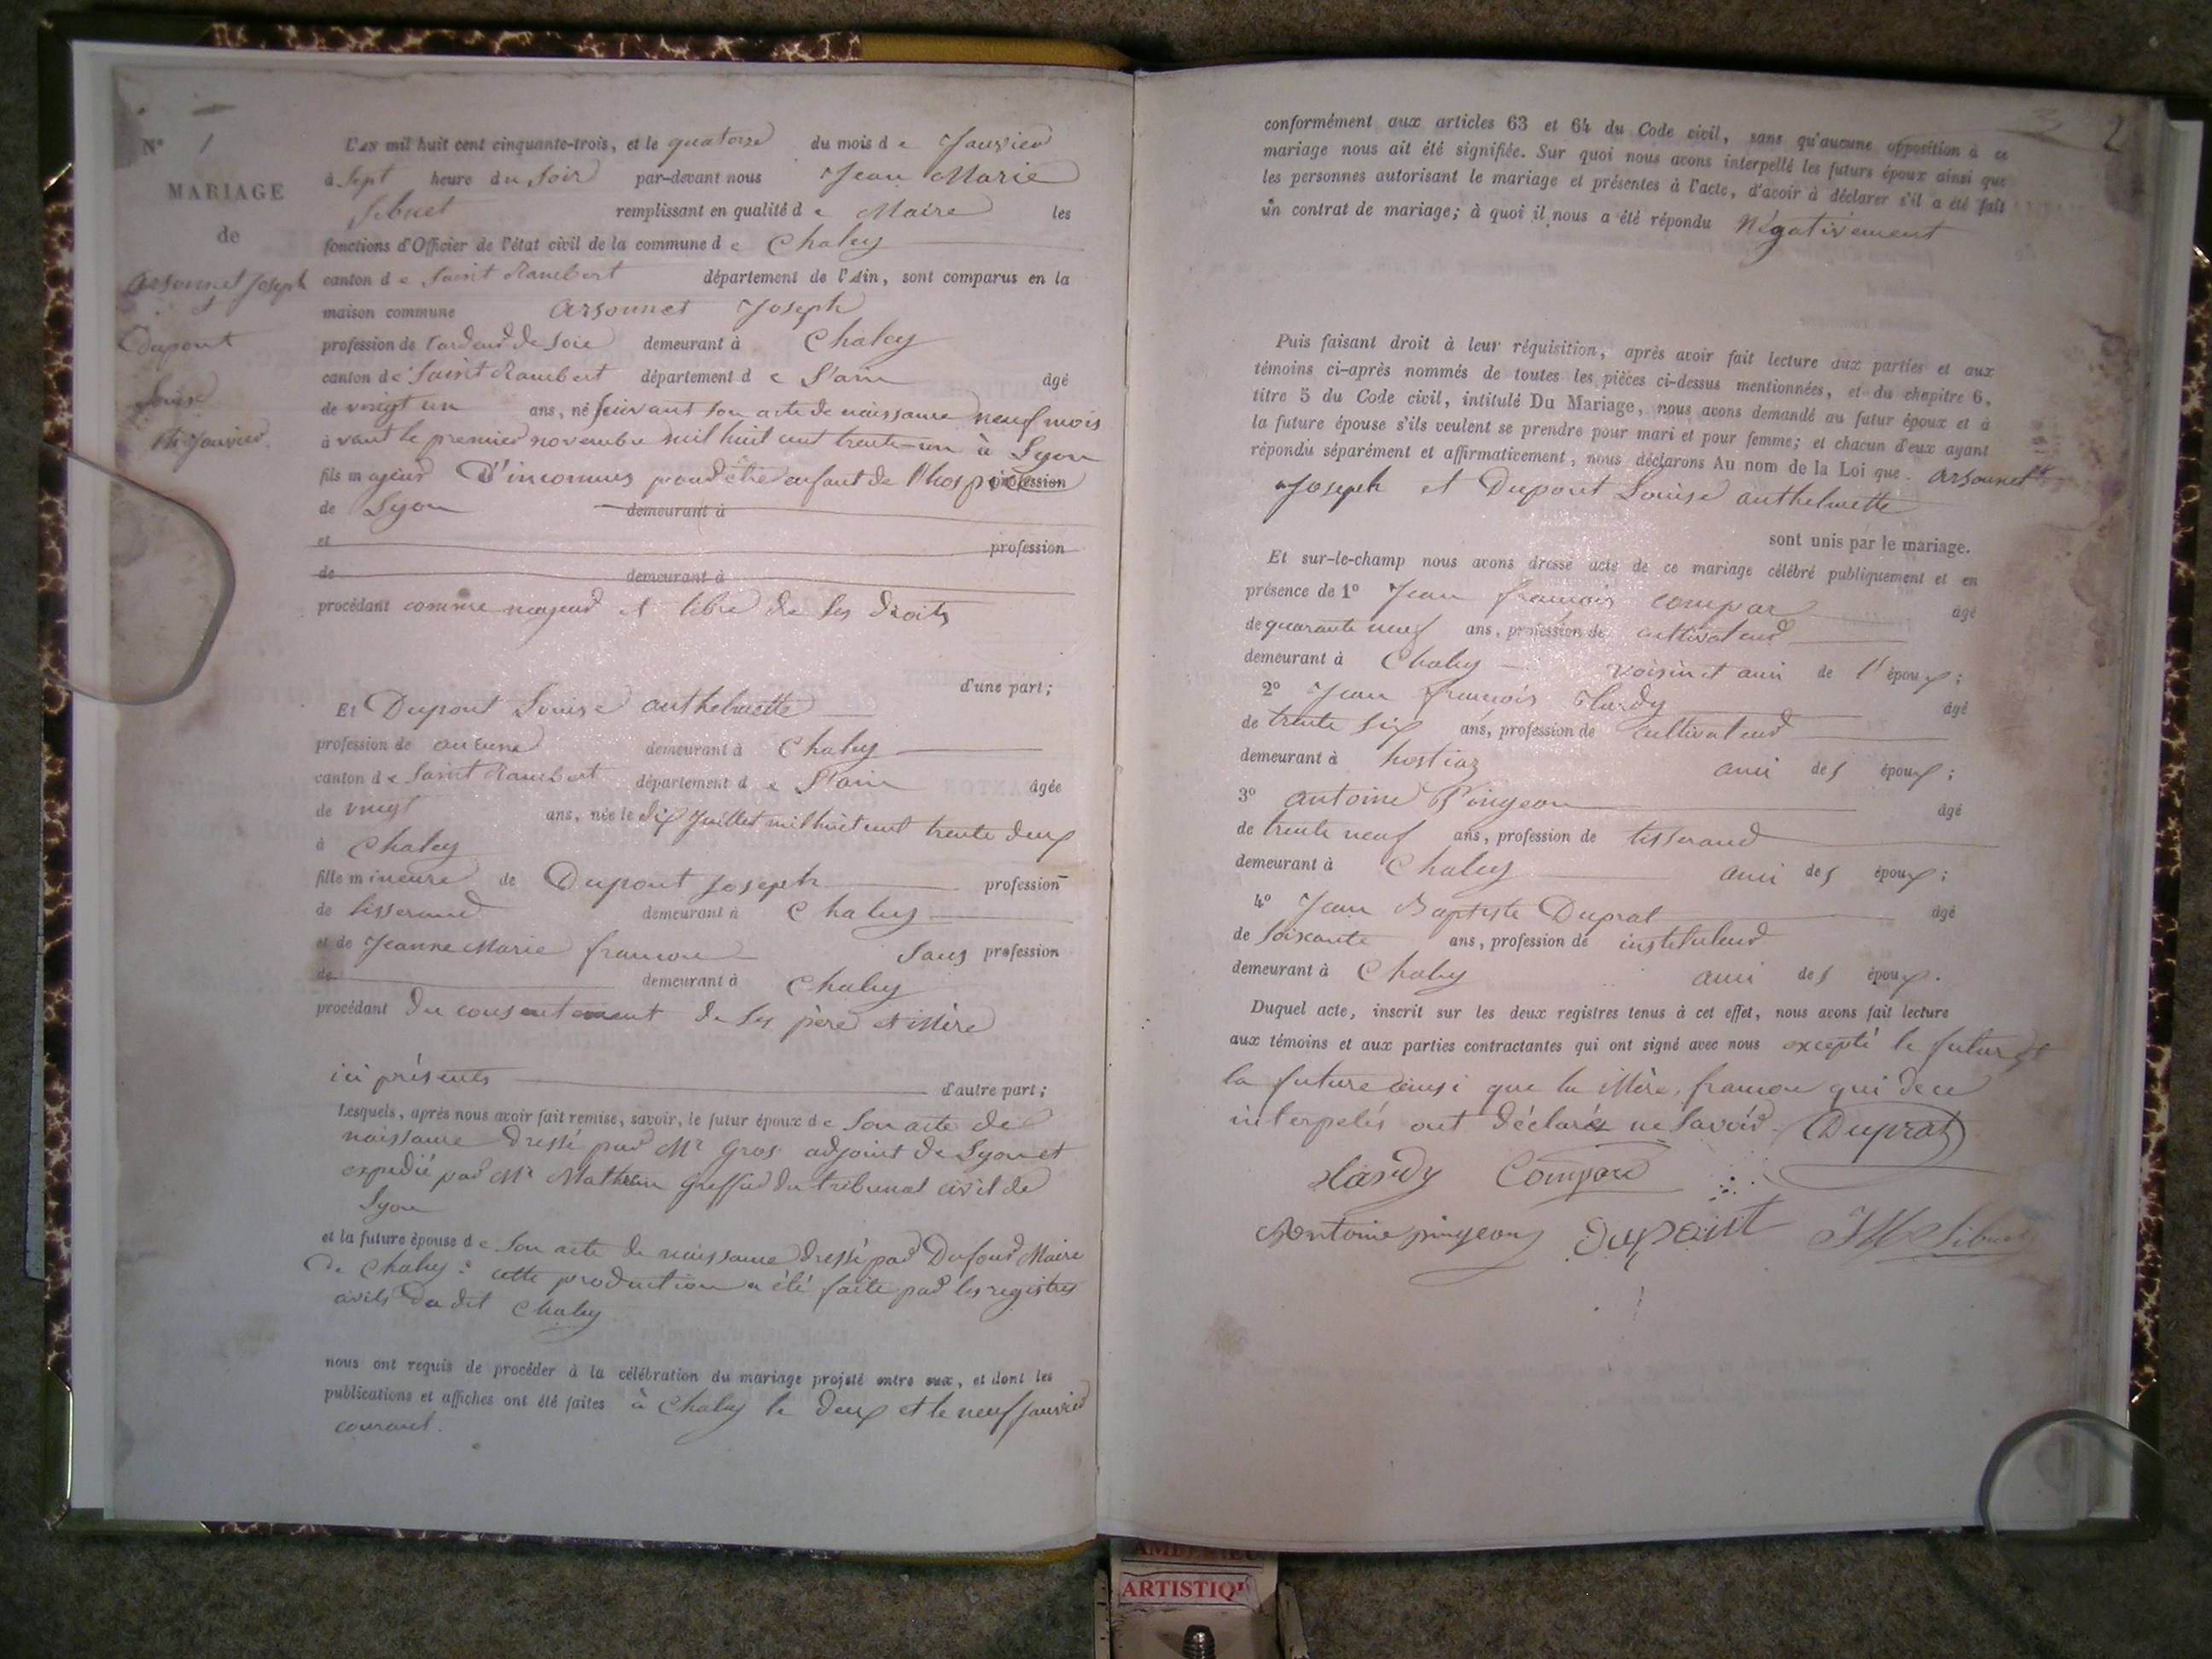 N° 1
MARIAGE
de
Arsonnet Joseph
Dupont
Louise
14 Janvier
L'an mil huit cent cinquante-trois, et le quatorze du mois de Janvier
à Sept heure du Soir par-devant nous Jean Marie
remplissant en qualité de Maire les
fonctions d'Officier de l'état civil de la commune de Chaley
canton de Saint Rambert département de l'Ain, sont comparus en la
maison commune Arsonnet Joseph
profession de Cardeur de Soie demeurant à Chaley
canton de Saint Rambert département de L'ain âgé
de vingt un ans, né suivant son acte de naissance neuf mois
avant le premier novembre mil huit cent trente-un à Lyon
fils majeur D'inconnus pour être enfant de l'hospice profession
de Lyon demeurant à
et profession
de demeurant à
procédant comme majeur et libre de ses droits
d'une part;
Et Dupont Louise anthelmette
profession de aucune demeurant à Chaley
canton de Saint Rambert département de L'ain âgée
de vingt ans, née le Six Juillet mil huit cent trente deux
à Chaley
fille mineure de Dupont Joseph profession
de tisserand demeurant à Chaley
et de Jeanne Marie francon Sans profession
de demeurant à Chaley
procédant du consentement de Ses père et Mère
ici présents d'autre part;
Lesquels, après nous avoir fait remise, savoir, le futur époux de Son acte de
naissance Dressé par Mr Gros adjoint de Lyon et
expedié par Mr Mathieu Greffier du tribunal civil de
Lyon
et la future épouse de Son acte de naissance Dressé par Dufour Maire
De Chaley : cette production a été faite par les registres
civils Du dit Chaley
nous ont requis de procéder à la célébration du mariage projeté entre eux, et dont les
publications et affiches ont été faites à Chaley le Deux et le neuf Janvier
courant.
2
conformément aux articles 63 et 64 du Code civil, sans qu'aucune opposition à ce
mariage nous ait été signifiée. Sur quoi nous avons interpellé les futurs époux ainsi que
les personnes autorisant le mariage et présentes à l'acte, d'avoir à déclarer s'il a été fait
un contrat de mariage; à quoi il nous a été répondu Négativement
Puis faisant droit à leur réquisition, après avoir fait lecture aux parties et aux
témoins ci-après nommés de toutes les pièces ci-dessus mentionnées, et du chapitre 6,
titre 5 du Code civil, intitulé Du Mariage, nous avons demandé au futur époux et à
la future épouse s'ils veulent se prendre pour mari et pour femme; et chacun d'eux ayant
répondu séparément et affirmativement, nous déclarons Au nom de la Loi que Arsonnet
Joseph et Dupont Louise anthelmette
sont unis par le mariage.
Et sur-le-champ nous avons dressé acte de ce mariage célébré publiquement et en
présence de 1° Jean françois Compar âgé
de quarante neuf ans, profession de cultivateur
demeurant à Chaley voisin et ami de l'époux;
2° Jean françois Hardy âgé
de trente Six ans, profession de Cultivateur
demeurant à hostiaz ami des époux;
3° Antoine Pingeon âgé
de trente neuf ans, profession de tisserand
demeurant à Chaley ami des époux;
4° Jean Baptiste Duprat âgé
de Soixante ans, profession de instituteur
demeurant à Chaley ami des époux.
Duquel acte, inscrit sur les deux registres tenus à cet effet, nous avons fait lecture
aux témoins et aux parties contractantes qui ont signé avec nous excepté le futur et
la future ainsi que la Mère francon qui de ce
interpelés ont déclaré ne Savoir. Duprat
Hardy Compare
Antoine pingeon Dupont
AME
ARTISTIQ